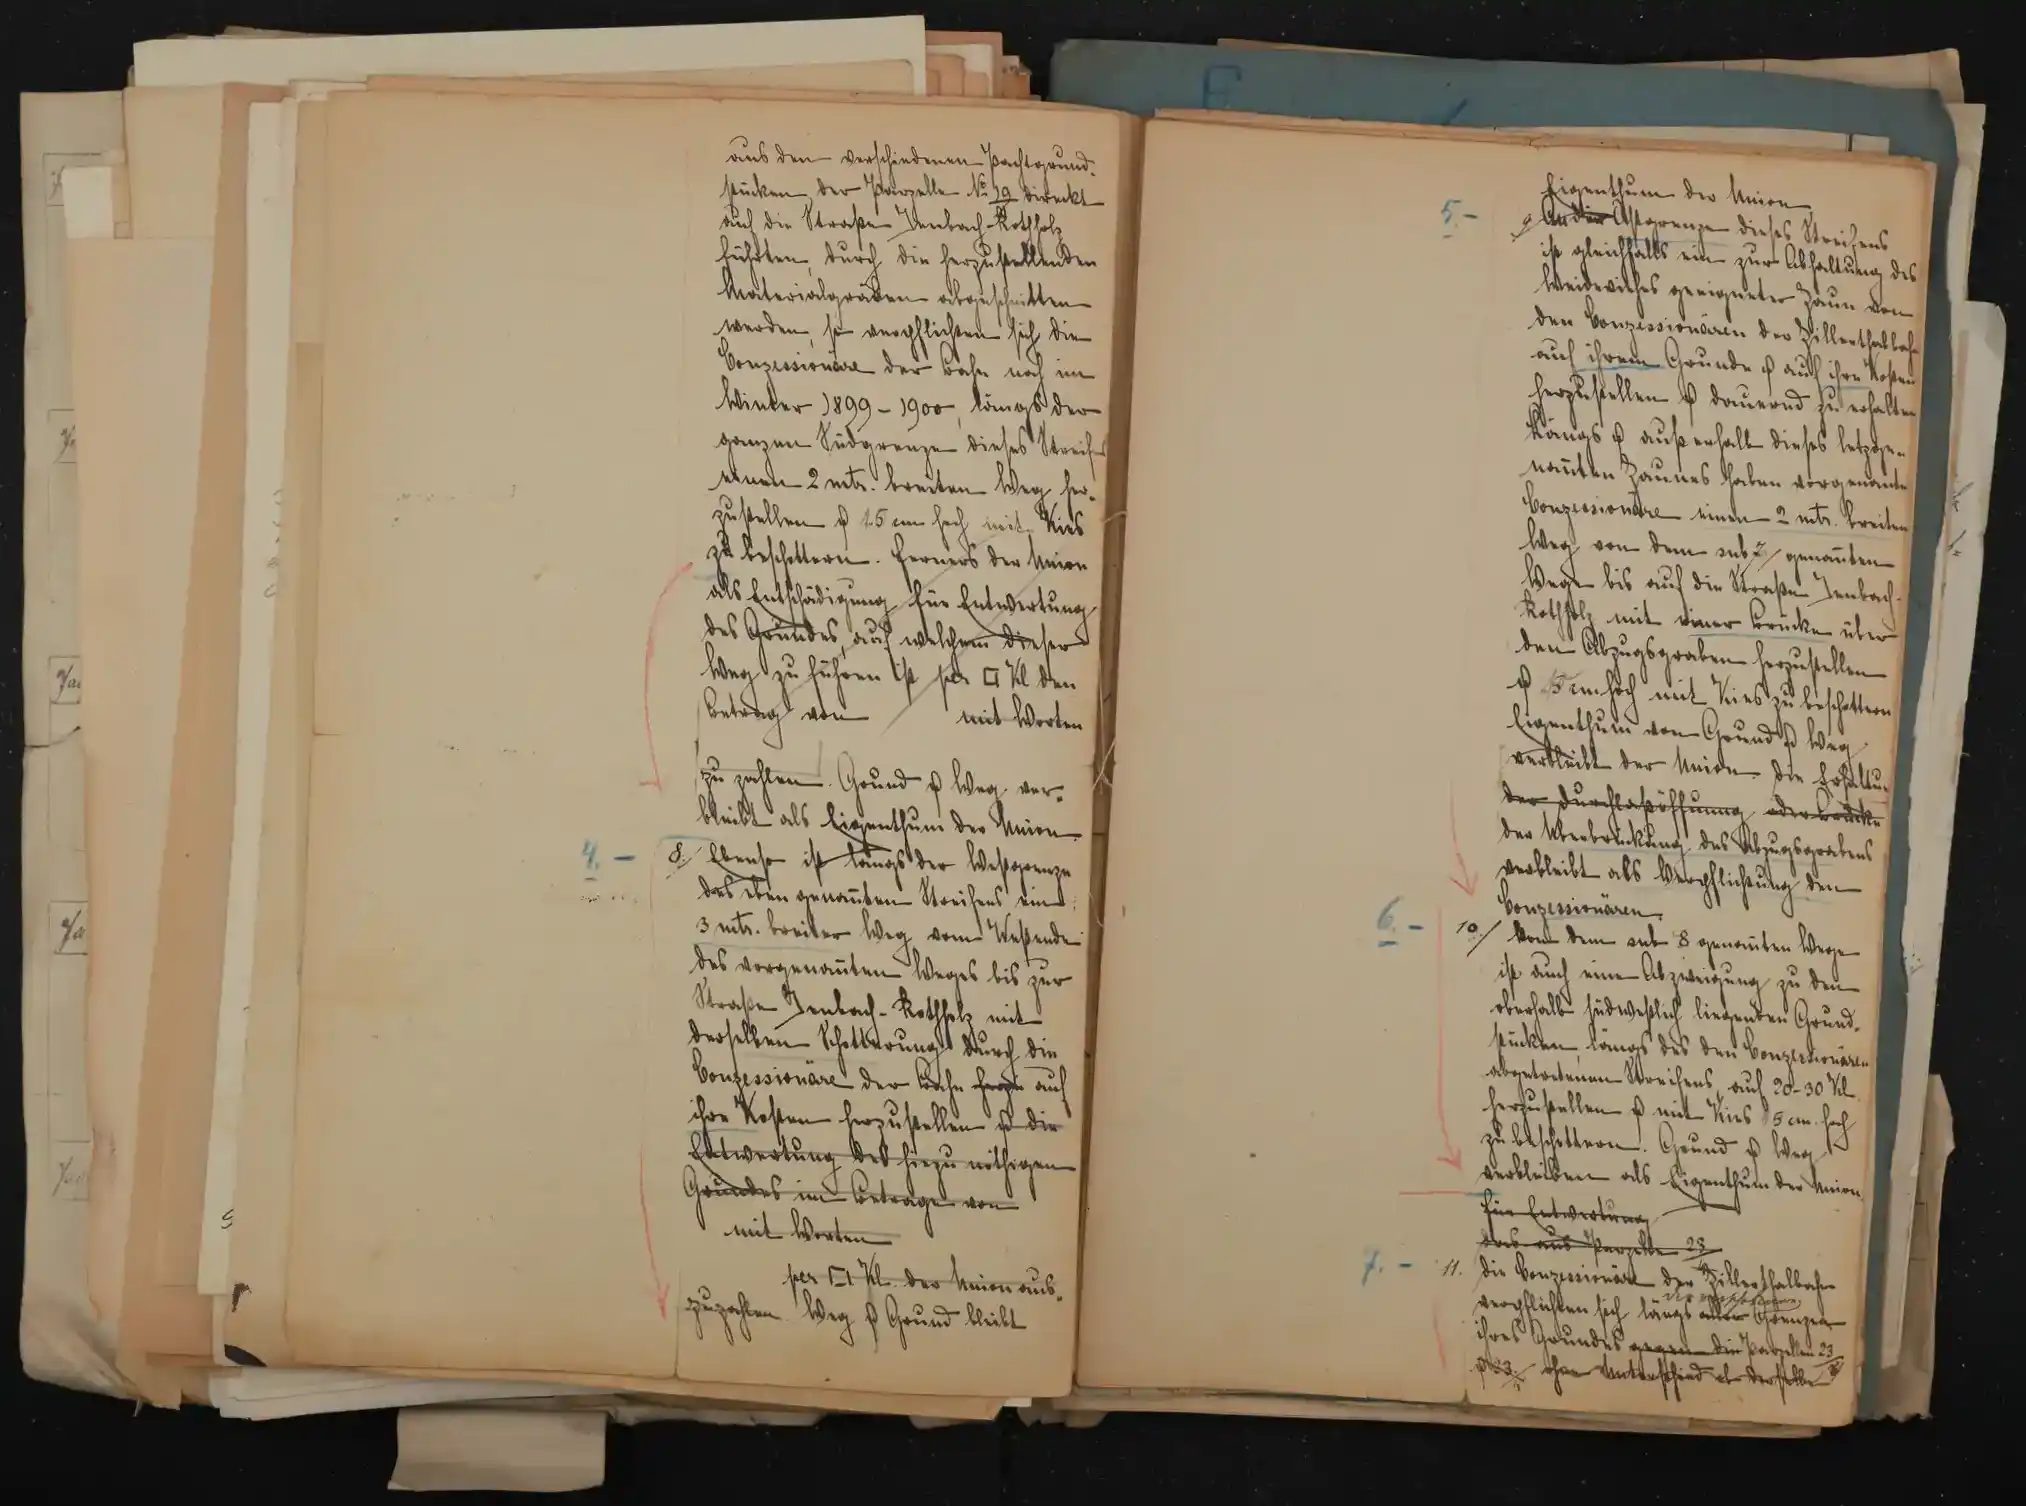 aus den verschiedenen Pachtgrund-
stücken der Parzelle No 19 direkt
auf die Straße Jenbach-Rothholz
führten, durch die herzustellenden
Materialgräben abgeschnitten
werden, so verpflichten sich die
Conzessionäre der Bahn noch im
Winter 1899-1900, längs der
ganzen Südgrenze dieses Streifens
einen 2 mtr. breiten Weg her-
zustellen & 15 cm hoch mit Kies
zu beschottern. Ferners der Union
als Entschädigung für Entwertung
des Grundes, auf welchem dieser
Weg zu führen ist per □ Kl. den
Betrag von mit Worten
zu zahlen. Grund & Weg ver-
bleibt als Eigenthum der Union.
4. - 8./ Ebenso ist längs der Westgrenze
des eben genannten Streifens ein
3 mtr. breiter Weg vom Westende
des vorgenannten Weges bis zur
Straße Jenbach-Rothholz mit
derselben Schotterung durch die
Conzessionäre der Bahn auf
ihre Kosten herzustellen & die
Entwertung des hiezu nöthigen
Grundes im Betrage von
mit Worten
per □ Kl. der Union aus-
zuzahlen. Weg & Grund bleibt
Eigenthum der Union
5. - 9 An der Ostgrenze dieses Streifens
ist gleichfalls ein zur Abhaltung des
Weideviehes geeigneter Zaun von
den Conzessionären der Zillerthalbahn
auf ihrem Grunde & auf ihre Kosten
herzustellen & dauernd zu erhalten
Längs & außerhalb dieses letztge-
nannten Zaunes haben vorgenannte
Conzessionäre einen 2 mtr. breiten
Weg von dem sub 7/ genannten
Wege bis auf die Straße Jenbach-
Rothholz mit einer Brücke über
den Abzugsgraben herzustellen
& 15 cm hoch mit Kies zu beschottern
Eigenthum von Grund & Weg
verbleibt der Union. Die Erhaltung
der Durchlaßöffnung oder Brücke
der Überbrückung des Abzugsgrabens
verbleibt als Verpflichtung den
Conzessionären.
6. - 10./ Von dem sub 8 genannten Wege
ist auch eine Abzweigung zu den
oberhalb südwestlich liegenden Grund-
stücken, längs des den Conzessionären
abgetretenen Streifens auf 20-30 Kl.
herzustellen & mit Kies 15 cm. hoch
zu beschottern. Grund & Weg
verbleiben als Eigenthum der Union.
Für Entwertung
des aus Parzelle 23
7. - 11. Die Conzessionäre der Zillerthalbahn
verpflichten sich längs aller Grenzen
ihres Grundes gegen die Parzellen 23
& 23 ohne Unterschied ob derselbe